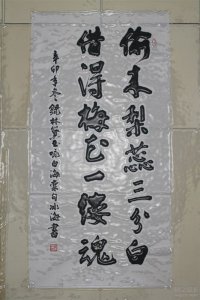 偷来梨蕊三分白
借得梅花一缕魂
辛卯年冬录林黛玉咏白海棠句冰海书